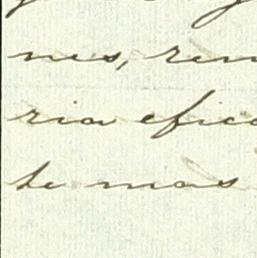 nes, rem
ria efica
te mas